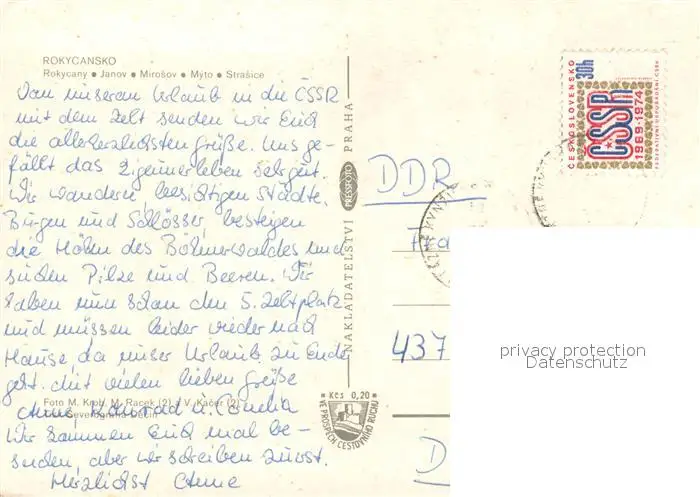 ROKYCANSKO
Rokycany • Janov • Mirošov • Mýto • Strašice
Von unserem Urlaub in die ČSSR
mit dem Zelt senden wir Euch
die allerherzlichsten Grüße. Uns ge-
fällt das Zigeunerleben sehr gut.
Wir wandern, besichtigen Städte,
Burgen und Schlösser, besteigen
die Höhen des Böhmerwaldes und
suchen Pilze und Beeren. Wir
haben nun schon den 5. Zeltplatz
und müssen leider wieder nach
Hause da unser Urlaub zu Ende
geht. Mit vielen lieben Grüße
Foto M. Krob, M. Racek (2) a V. Kačer (2)
Anne, Konrad u. Cornelia
Severografia Děčín
Wir kommen Euch mal be-
suchen, aber wir schreiben zuvor.
Herzlichst Anne
NAKLADATELSTVÍ PRESSFOTO PRAHA
Kčs 0,20
VE PROSPĚCH CESTOVNÍHO RUCHU
ČESKOSLOVENSKO
30h
ČSSR
1969·1974
DDR
437
D
privacy protection
Datenschutz